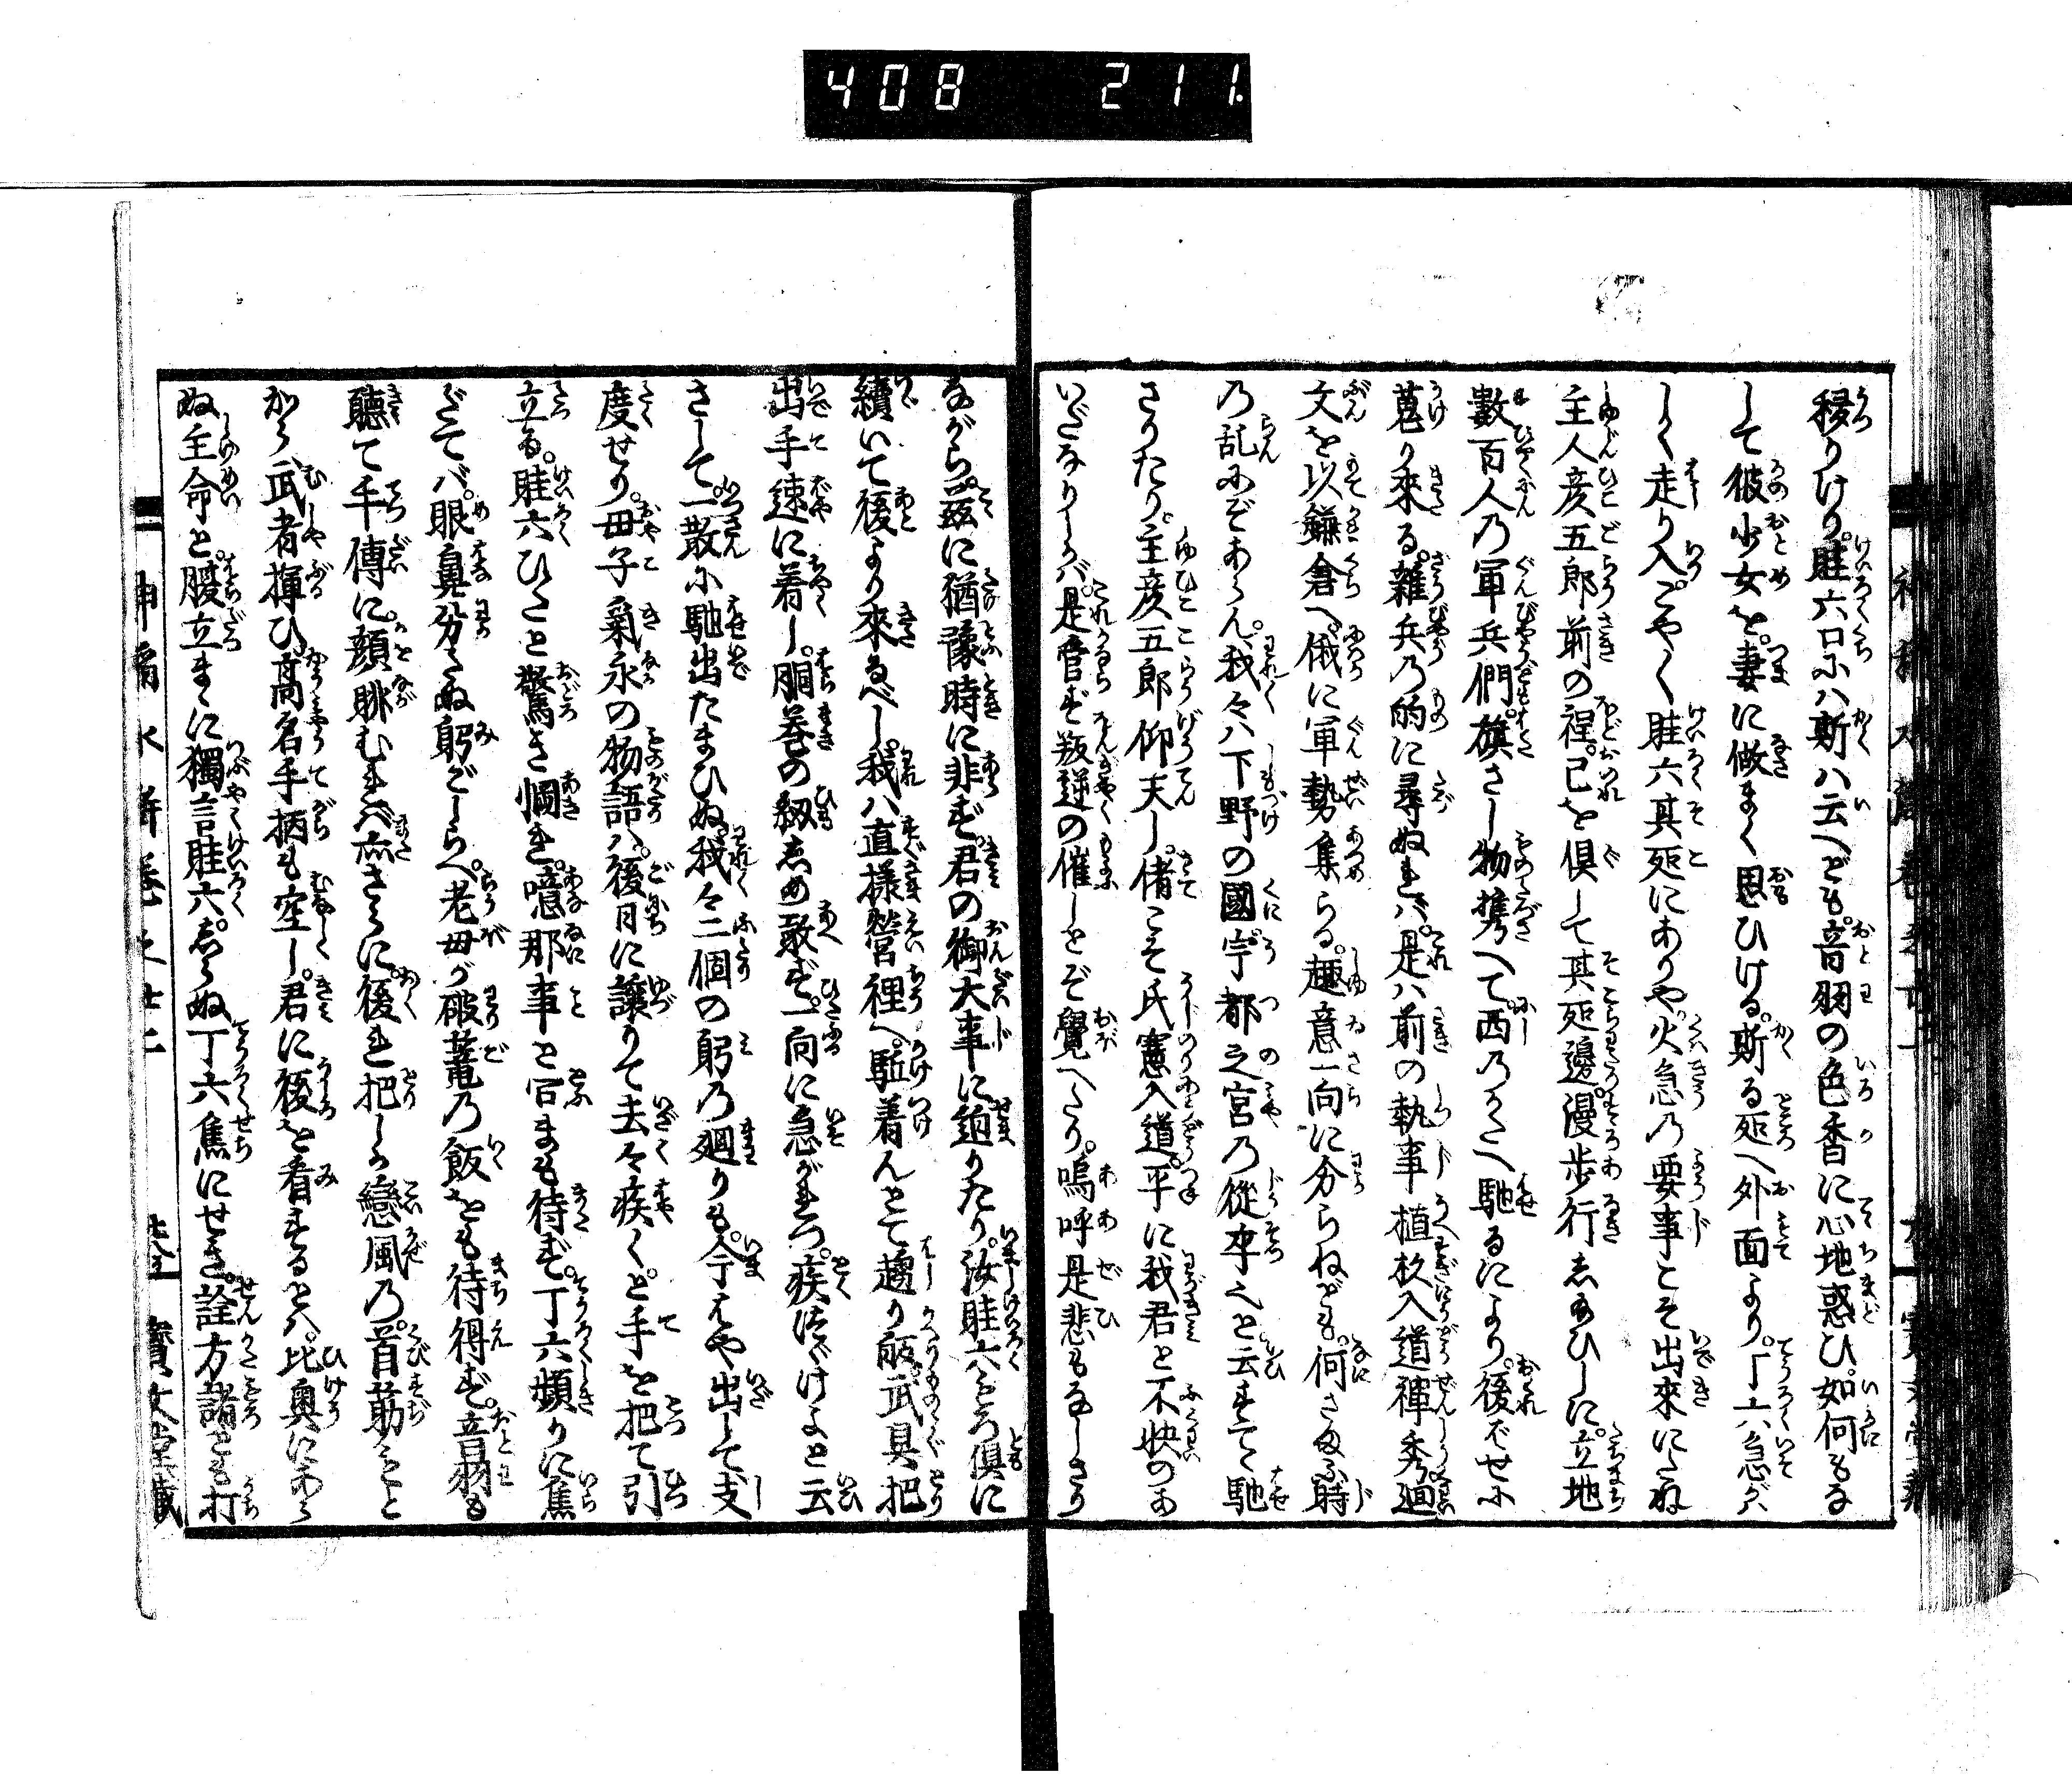 408 211.
移りけり。眭六口にハ斯ハ云へども。音羽の色香に心地惑ひ。如何もな
して彼少女を。妻に做まく思ひける。斯る処へ外面より。丁六急ゞ
しく走り入。やく眭六其処にありや。火急乃要事こそ出來にたね
主人彦五郎前の裎。己を倶して其処邊。漫歩行し給ひしに。立地
數百人乃軍兵們。旗さし物携へて。西乃かたへ馳るにより。後ばせに
蒐り來る。雜兵乃的に尋ぬれバ。是ハ前の執事植杦入道禅秀廻
文を以鎌倉へ。俄に軍勢集らる。趣意一向に分らねども。何さま不時
乃乱にぞあらん。我々ハ下野の國。宇都之宮乃從卒之と云すてゝ馳
さりたり。主彦五郎仰天し。偖こそ氏憲入道。平に我君と不快のあ
いだなりしかバ。是管ず叛逆の催しとぞ覺へたり。嗚呼是悲もなしさり
ながら。茲に猶豫時に非ず君の御大事に逈りたり。汝眭六もろ倶に
續いて後より來るべし。我ハ直樣營裡へ。駈着んとて趨り皈。武具把
出手速に着し。胴巻の紐しめ敢ず。一向に急がれつ。疾つゞけよと云
さして。一散に馳出たまひぬ我々二個の躬乃廻りも。今はや出して支
度せり。母子氣永の物語ハ。後日に譲りて去々疾くと手を把て引
立る。眭六ひたと驚き惘れ。噫那事と官まも待ず。丁六頻りに焦
だてバ。眼鼻分たぬ躬ごしらへ。老母が破篭乃飯さも待得ず。音羽も
聽て手傳に。顔眺むれバ亦さらに。後れ把しか戀風乃。首筋もと
から武者揮ひ高名手柄も空し。君に後を看するとハ。比奥にあら
ぬ主命と。腹立まくに獨言眭六。しらぬ丁六焦にせき。詮方諸とも打